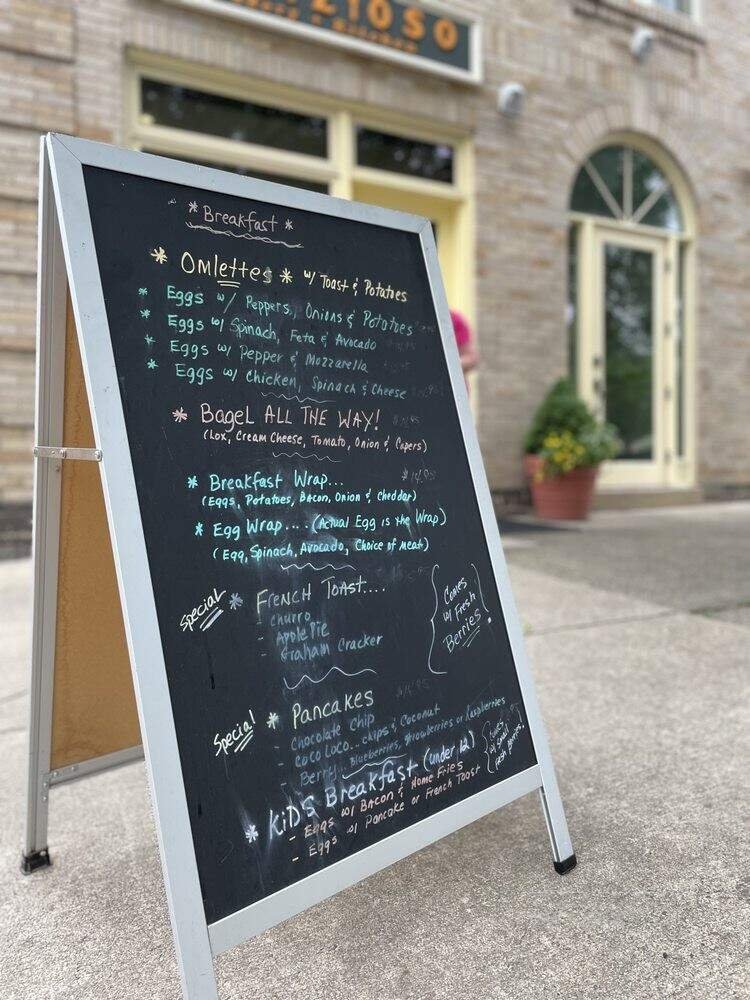 Kitchen
* Breakfast *
* Omlettes * w/ Toast & Potatoes
* Eggs w/ Peppers, Onions & Potatoes
* Eggs w/ Spinach, Feta & Avocado
* Eggs w/ Pepper & Mozzarella
* Eggs w/ Chicken, Spinach & Cheese
* Bagel ALL THE WAY!
(Lox, Cream Cheese, Tomato, Onion & Capers)
* Breakfast Wrap...
(Eggs, Potatoes, Bacon, Onion & Cheddar)
* Egg Wrap.... (Actual Egg is the Wrap)
(Egg, Spinach, Avocado, Choice of meat)
Special * French Toast....
- Churro
- Apple Pie
- Graham Cracker
Comes
w/ Fresh
Berries.
Special * Pancakes
- Chocolate Chip
- Coco Loco... chips & Coconut
- Berry... Blueberries, Strawberries or Raspberries
* KiDS Breakfast (under 12)
- Eggs w/ Bacon & Home Fries
- Eggs w/ Pancake or French Toast